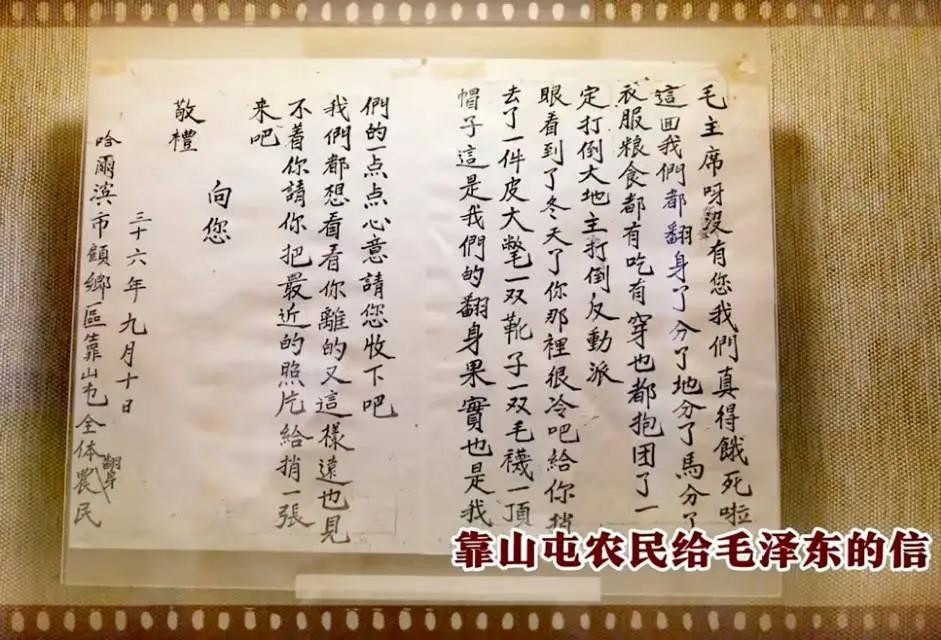 毛主席呀没有您我們真得餓死啦
這回我們都翻身了分了地分了馬分了
衣服粮食都有吃有穿也都抱团了一
定打倒大地主打倒反動派
眼看到了冬天了你那裡很冷吧給你捎
去了一件皮大氅一双靴子一双毛襪一頂
帽子這是我們的翻身果實也是我
們的一点点心意請您收下吧
我們都想看看你離的又這樣遠也見
不着你請你把最近的照片給捎一張
来吧
向您
敬禮
三十六年九月十日
哈爾滨市顧鄉區靠山屯全体翻身農民
靠山屯农民给毛泽东的信